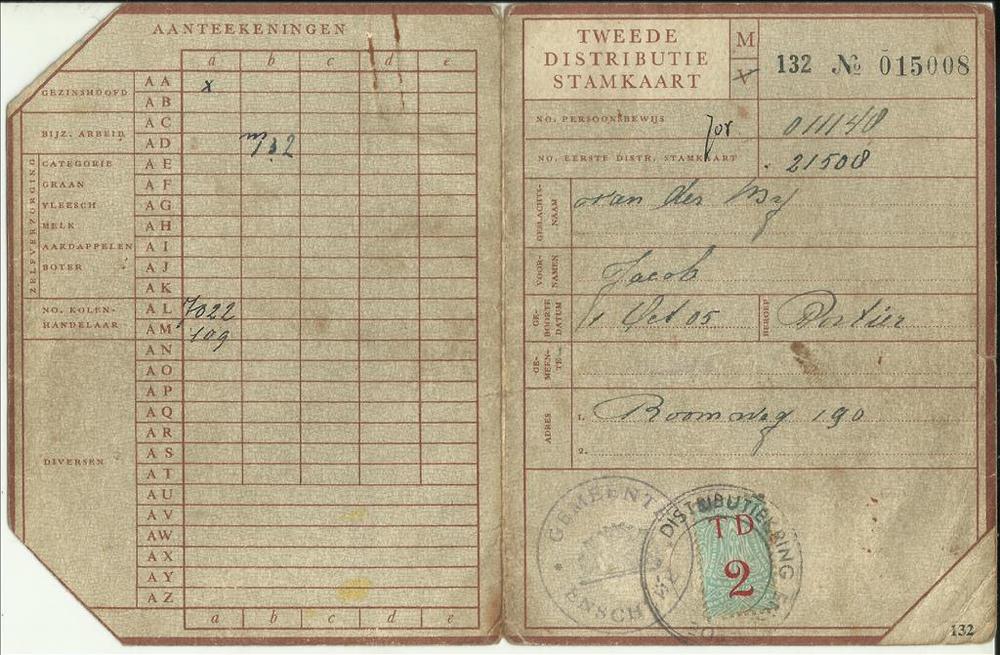 AANTEEKENINGEN
a b c d e
GEZINSHOOFD
AA x
AB
BIJZ. ARBEID
AC
AD 132
ZELFVERZORGING
CATEGORIE AE
GRAAN AF
VLEESCH AG
MELK AH
AARDAPPELEN AI
BOTER AJ
AK
NO. KOLEN-
HANDELAAR
AL 7022
AM 109
AN
AO
AP
AQ
AR
AS
DIVERSEN
AT
AU
AV
AW
AX
AY
AZ
a b c d e
TWEEDE
DISTRIBUTIE
STAMKAART
M
V
132 No 015008
NO. PERSOONSBEWIJS 011140
NO. EERSTE DISTR. STAMKAART 21508
GESLACHTS-
NAAM
van der
VOOR-
NAMEN
Jacob
GE-
BOORTE
DATUM
1 Oct 05
BEROEP
Portier
GE-
MEEN-
TE
ADRES
1. Roomweg 190
2.
GEMEENTE
ENSCH
DISTRIBUTIEKRING
TD
2
132